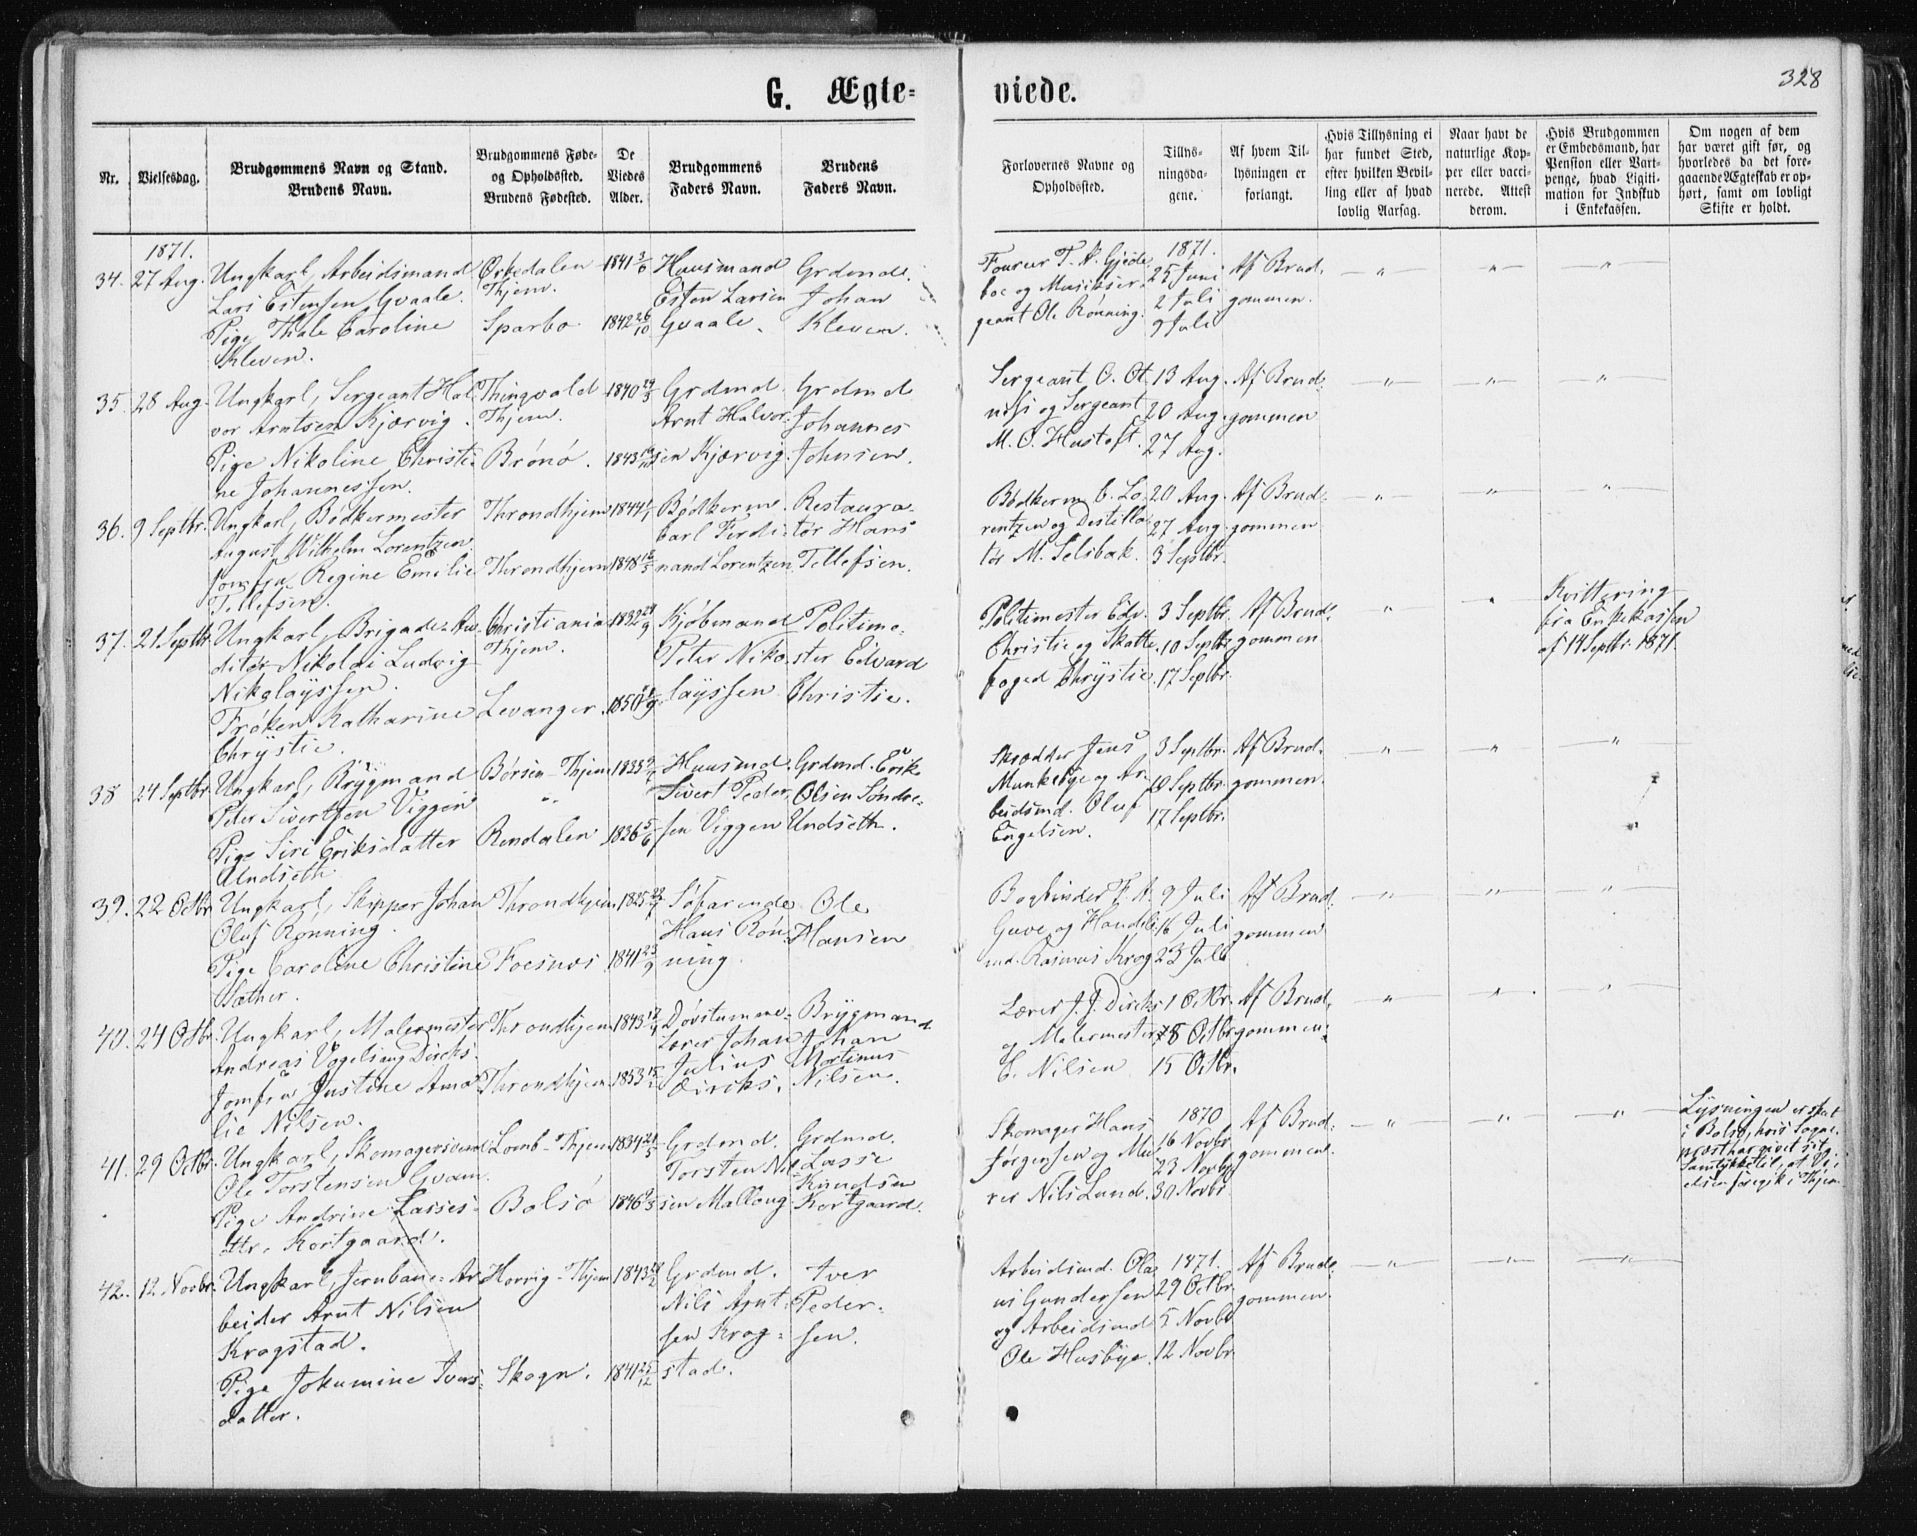 328
G. Ægte=
viede.
Nr.
Vielsesdag.
Brudgommens Navn og Stand.
Brudens Navn.
Brudgommens Føde-
og Opholdssted.
Brudens Fødested.
De
Viedes
Alder.
Brudgommens
Faders Navn.
Brudens
Faders Navn.
Forlovernes Navne og
Opholdssted.
Tillys-
ningsda-
gene.
Af hvem Til-
lysningen er
forlangt.
Hvis Tillysning ei
har fundet Sted,
efter hvilken Bevil-
ling eller af hvad
lovlig Aarsag.
Naar havt de
naturlige Kop-
per eller vacci-
nerede. Attest
derom.
Hvis Brudgommen
er Embedsmand, har
Pension eller Vart-
penge, hvad Ligiti-
mation for Indskud
i Enkekassen.
Om nogen af dem
har været gift før, og
hvorledes da det fore-
gaaende Ægteskab er op-
hørt, samt om lovligt
Skifte er holdt.
1871.
34. 27 Aug.
Ungkarl, Arbeidsmand
Lars Estensen Gvaale.
Pige Thale Caroline
Kleven.
Orkedalen
Thjem.
Sparbo
1841 3/6
1842 26/10
Huusmand
Esten Larsen
Gvaale.
Grdmd.
Johan
Kleven.
Fourer T. A. Gjede
boe og Musikser
geant Ole Rønning.
1871.
25 Juni
2 Juli
9 Juli
Af Brud.
gommen.
35. 28 Aug.
Ungkarl, Sergeant Hal
vor Arntsen Kjærvig.
Pige Nikoline Christi-
ne Johannessen.
Thingvold
Thjem.
Brønø.
1840 29/3
1843
Grdmd
Arnt Halvor
sen Kjærvig.
Grdmd
Johannes
Johnsen.
Sergeant O. Ot
nesi og Sergeant
M. O. Hustoft.
13 Aug.
20 Aug.
27 Aug.
Af Brud-
gommen
36. 9 Septbr.
Ungkarl, Bødkermester
August Wilhelm Lorentzen
Jomfru Regine Emilie
Tellefsen.
Throndhjem
Throndhjem
1844
1848
Bødkerm.
Carl Ferdi-
nand Lorentzen
Restaura-
tør Hans
Tellefsen.
Bødkerm C. Lo
rentzen og Destilla
tør M. Selsbak.
20 Aug.
27 Aug.
3 Septbr.
Af Brud-
gommen
37. 21 Septbr
Ungkarl, Brigade-Au-
ditør Nikolai Ludvig
Nikolayssen.
Frøken Katharine
Chrystie.
Christiania
Thjem.
Levanger.
1832 29/9
1850
Kjøbmand
Peter Niko
layssen
Politime-
ster Edvard
Christie.
Politimester Edv.
Christie og Skatte
foged Chrystie.
3 Septbr.
10 Septbr.
17 Septbr.
Af Brud-
gommen
Kvittering
fra Enkekassen
af 14 Septbr 1871.
38 24 Septbr
Ungkarl, Brygmand
Peter Sivertsen Viggen
Pige Siri Eriksdatter
Undseth.
Børsen - Thjem
Rendalen
1833
1836 5/6
Huusmd.
Sivert Peder
sen Viggen
Grdmd. Erik
Olsen Søndre-
Undseth.
Skrædder Jens
Munkebye og Ar
beidsmd. Oluf
Engelsen.
3 Septbr.
10 Septbr.
17 Septbr.
Af Brud-
gommen.
39. 22 Octbr
Ungkarl, Skipper Johan
Oluf Rønning.
Pige Caroline Christine
Sæther.
Throndhjem
Foesnæs
1825
1841 23/9
Søfarende
Hans Røn-
ning.
Ole
Hansen
Bogbinder F. A.
Guve og Handels
md. Rasmus Krog
9 Juli
16 Juli
23 Juli
Af Brud.
gommen
40. 24 Octbr.
Ungkarl, Malermester
Andreas Vogelsang Dircks.
Jomfru Justine Ama-
lie Nilsen.
Throndhjem
Throndhjem
1843
1853
Døvstumme-
Lærer Johan
Julius
Dircks.
Brygmand
Johan
Mortinus
Nilsen.
Lærer J. J. Dircks
og Malermester
C. Nilsen
1 Octbr.
8 Octbr
15 Octbr.
Af Brud-
gommen.
41. 29 Octbr.
Ungkarl, Skomagersvend
Ole Torstensen Gvam.
Pige Andrine Lasses-
dtr. Kortgaard.
Lomb - Thjem
Bolsø
1834
1846
Grdmd.
Torsten Nil
sen Mallaug
Grdmd.
Lasse
Knudsen
Kortgaard.
Skomager Hans
Jørgensen og Mu
rer Nils Lund.
1870
16 Novbr
23 Novbr
30 Novbr
Af Brud-
gommen.
Lysningen er skeet
i Bolsø, hvis Sogne-
præst har givet sit
Samtykke til, at Vi-
elsen foregik i Thjem
42. 12 Novbr.
Ungkarl, Jernbane-Ar
beider Arnt Nilsen
Kragstad.
Pige Jokumine Ivers-
datter.
Horrig - Thjem
Skogn.
1843
1841 25/12
Grdmd.
Nils Arnt-
sen Krog-
stad.
Iver
Peder-
sen.
Arbeidsmd. Ola
us Gundersen
og Arbeidsmd
Ole Husbye.
1871.
29 Octbr
5 Novbr
12 Novbr
Af Brud-
gommen.